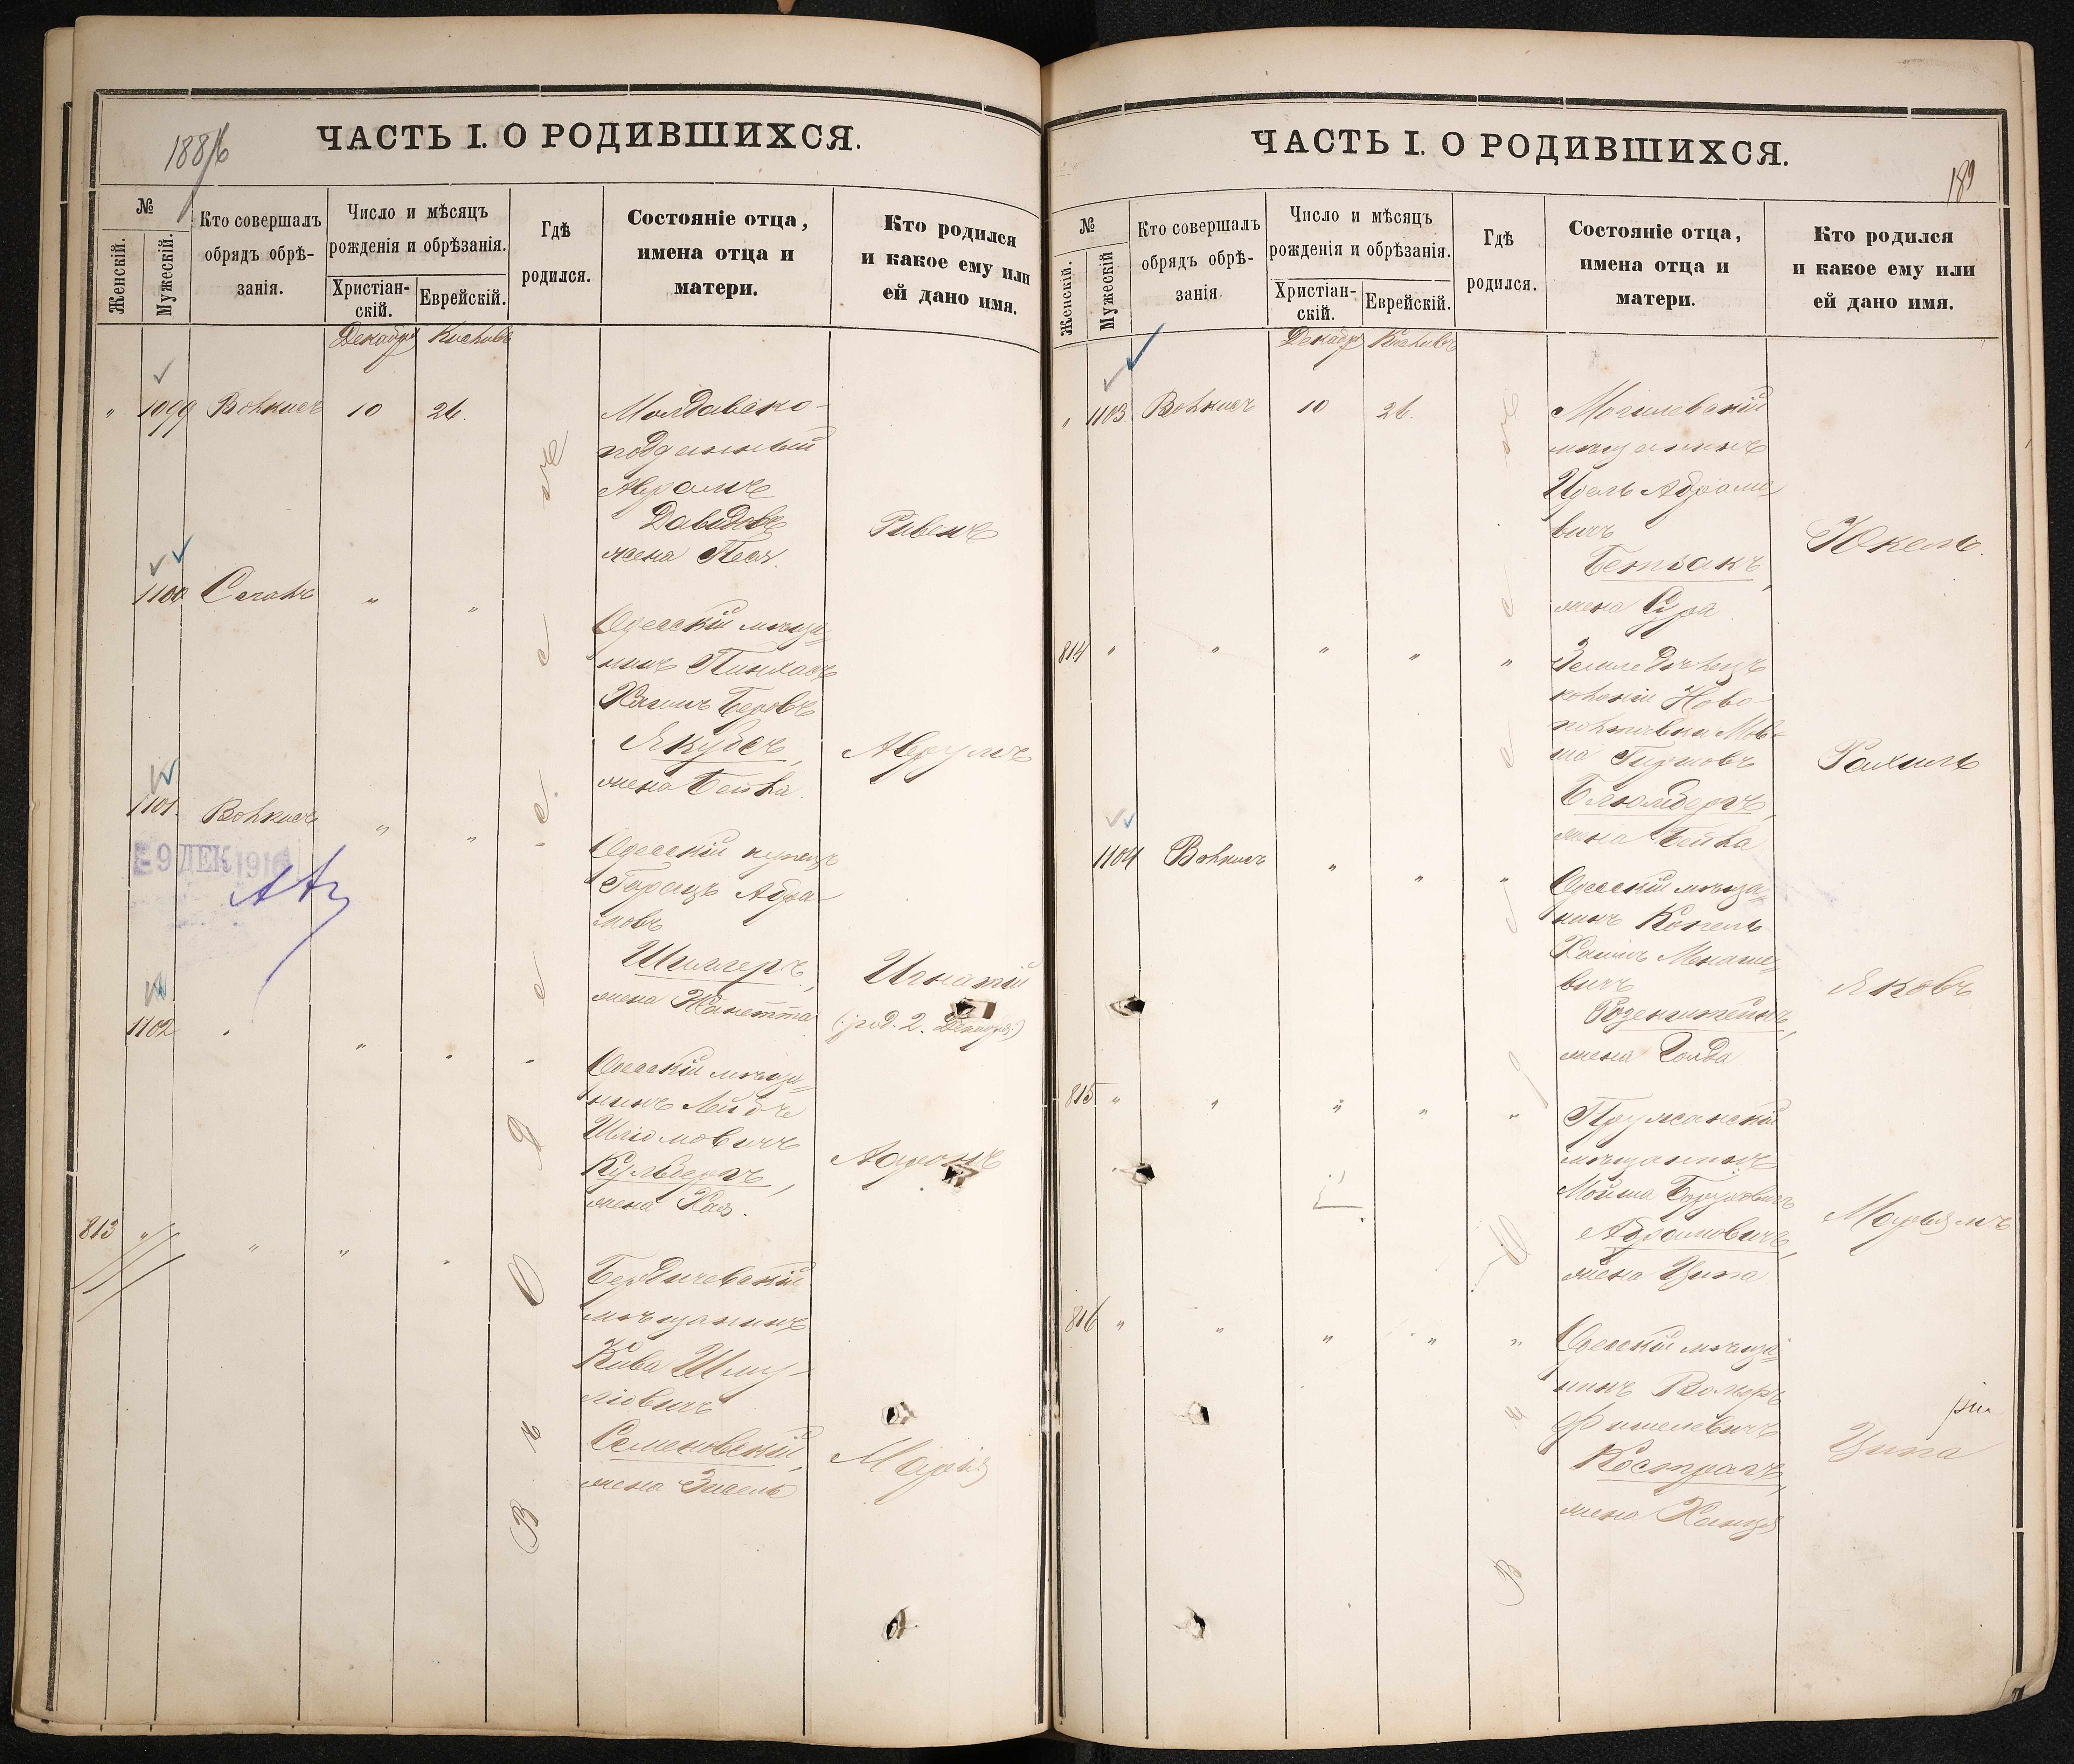 1886
ЧАСТЬ I. О РОДИВШИХСЯ.
№
Женскій.
Мужескій.
Кто совершалъ
обрядъ обрѣ-
занія.
Число и мѣсяцъ
рожденія и обрѣзанія.
Христіан-
скій.
Еврейскій.
Гдѣ
родился.
Состояніе отца,
имена отца и
матери.
Кто родился
и какое ему или
ей дано имя.
Декабря Кисливъ
" 1099 Волкисъ 10 26.
Молдавско-
подданный
Аврамъ
Давидовъ
жена Песя.
Ривенъ
1100 Сегалъ " "
Одесскій мѣща=
нинъ Пинхасъ
Хаимъ Беровъ
Якубсъ,
жена Бейла
Аврумъ
1101. Волкисъ " "
Одесскій купецъ
Герацъ Абра-
мовъ
Шиллеръ,
жена Жанетта
Игнатій
(: род. 2. Декабря :)
9 ДЕК 1916
1102 " " " "
Одесскій мѣща=
нинъ Лейбъ
Шліомовичъ
Кульбергъ,
жена Хая.
Аронъ
813 " " " "
Бердичевскій
мѣщанинъ
Кива Шму-
ліовичъ
Семеновскій,
жена Зисель
Марія
Въ Одессе
ЧАСТЬ I. О РОДИВШИХСЯ.
189
№
Женскій.
Мужескій
Кто совершалъ
обрядъ обрѣ-
занія.
Число и мѣсяцъ
рожденія и обрѣзанія.
Христіан-
скій.
Еврейскій.
Гдѣ
родился.
Состояніе отца,
имена отца и
матери.
Кто родился
и какое ему или
ей дано имя.
Декабря Кисливъ
" 1103. Волкисъ 10 26.
Могилевскій
мѣщанинъ
Идель Абрамо=
вичъ
Бетзакъ,
жена Сура
Юкель.
814 " " " " "
Земледѣлецъ
колоніи Ново-
полтавки Мов-
ша Гиршовъ
Блюмбергъ,
жена Бейла
Рахиль
1104 Волкисъ " " "
Одесскій мѣща=
нинъ Копель
Хаимъ Менаше=
вичъ
Розенштейнъ,
жена Голда
Яковъ
815 " " " " "
Пружанскій
мѣщанинъ
Мойша Боруховичъ
Абрамовичъ,
жена Ципа
Марьямъ
816 " " " " "
Одесскій мѣща=
нинъ Вольфъ
Фишелевичъ
Костragъ,
жена Ханця
Ципа
Въ Одессе